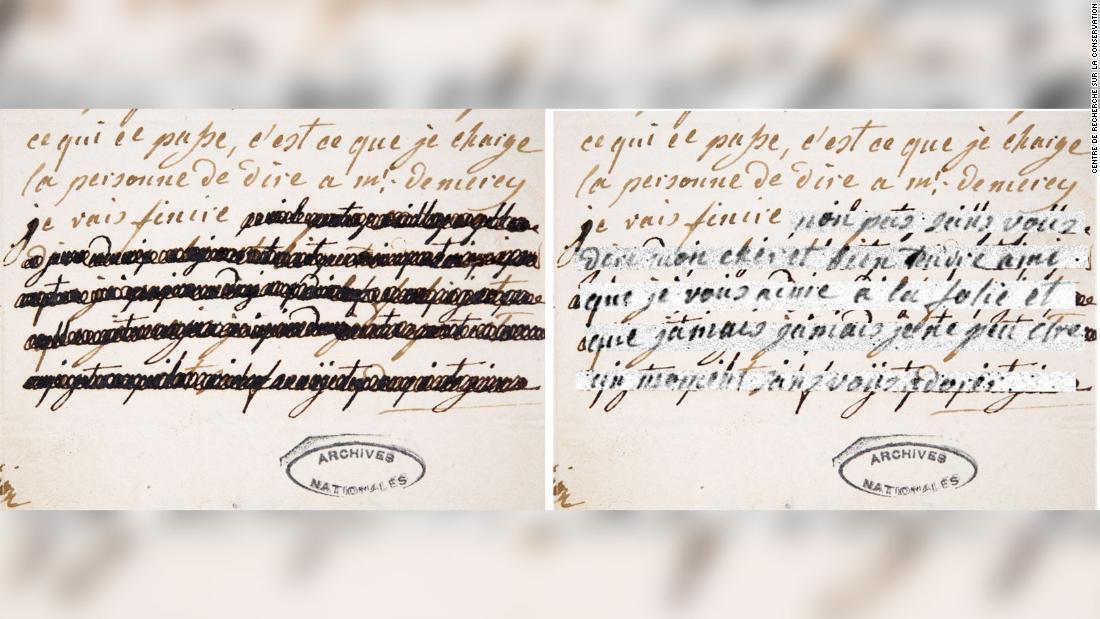 ce qui ce passe, c'est ce que je charge
la personne de dire a mr. de mercy
je vais finire
ARCHIVES
NATIONALES
ce qui ce passe, c'est ce que je charge
la personne de dire a mr. de mercy
je vais finire non pas sans vous
dire mon cher et bien tendre ami
que je vous aime à la folie et
que jamais jamais je ne peu être
un moment sans vous adorer
ARCHIVES
NATIONALES
CENTRE DE RECHERCHE SUR LA CONSERVATION